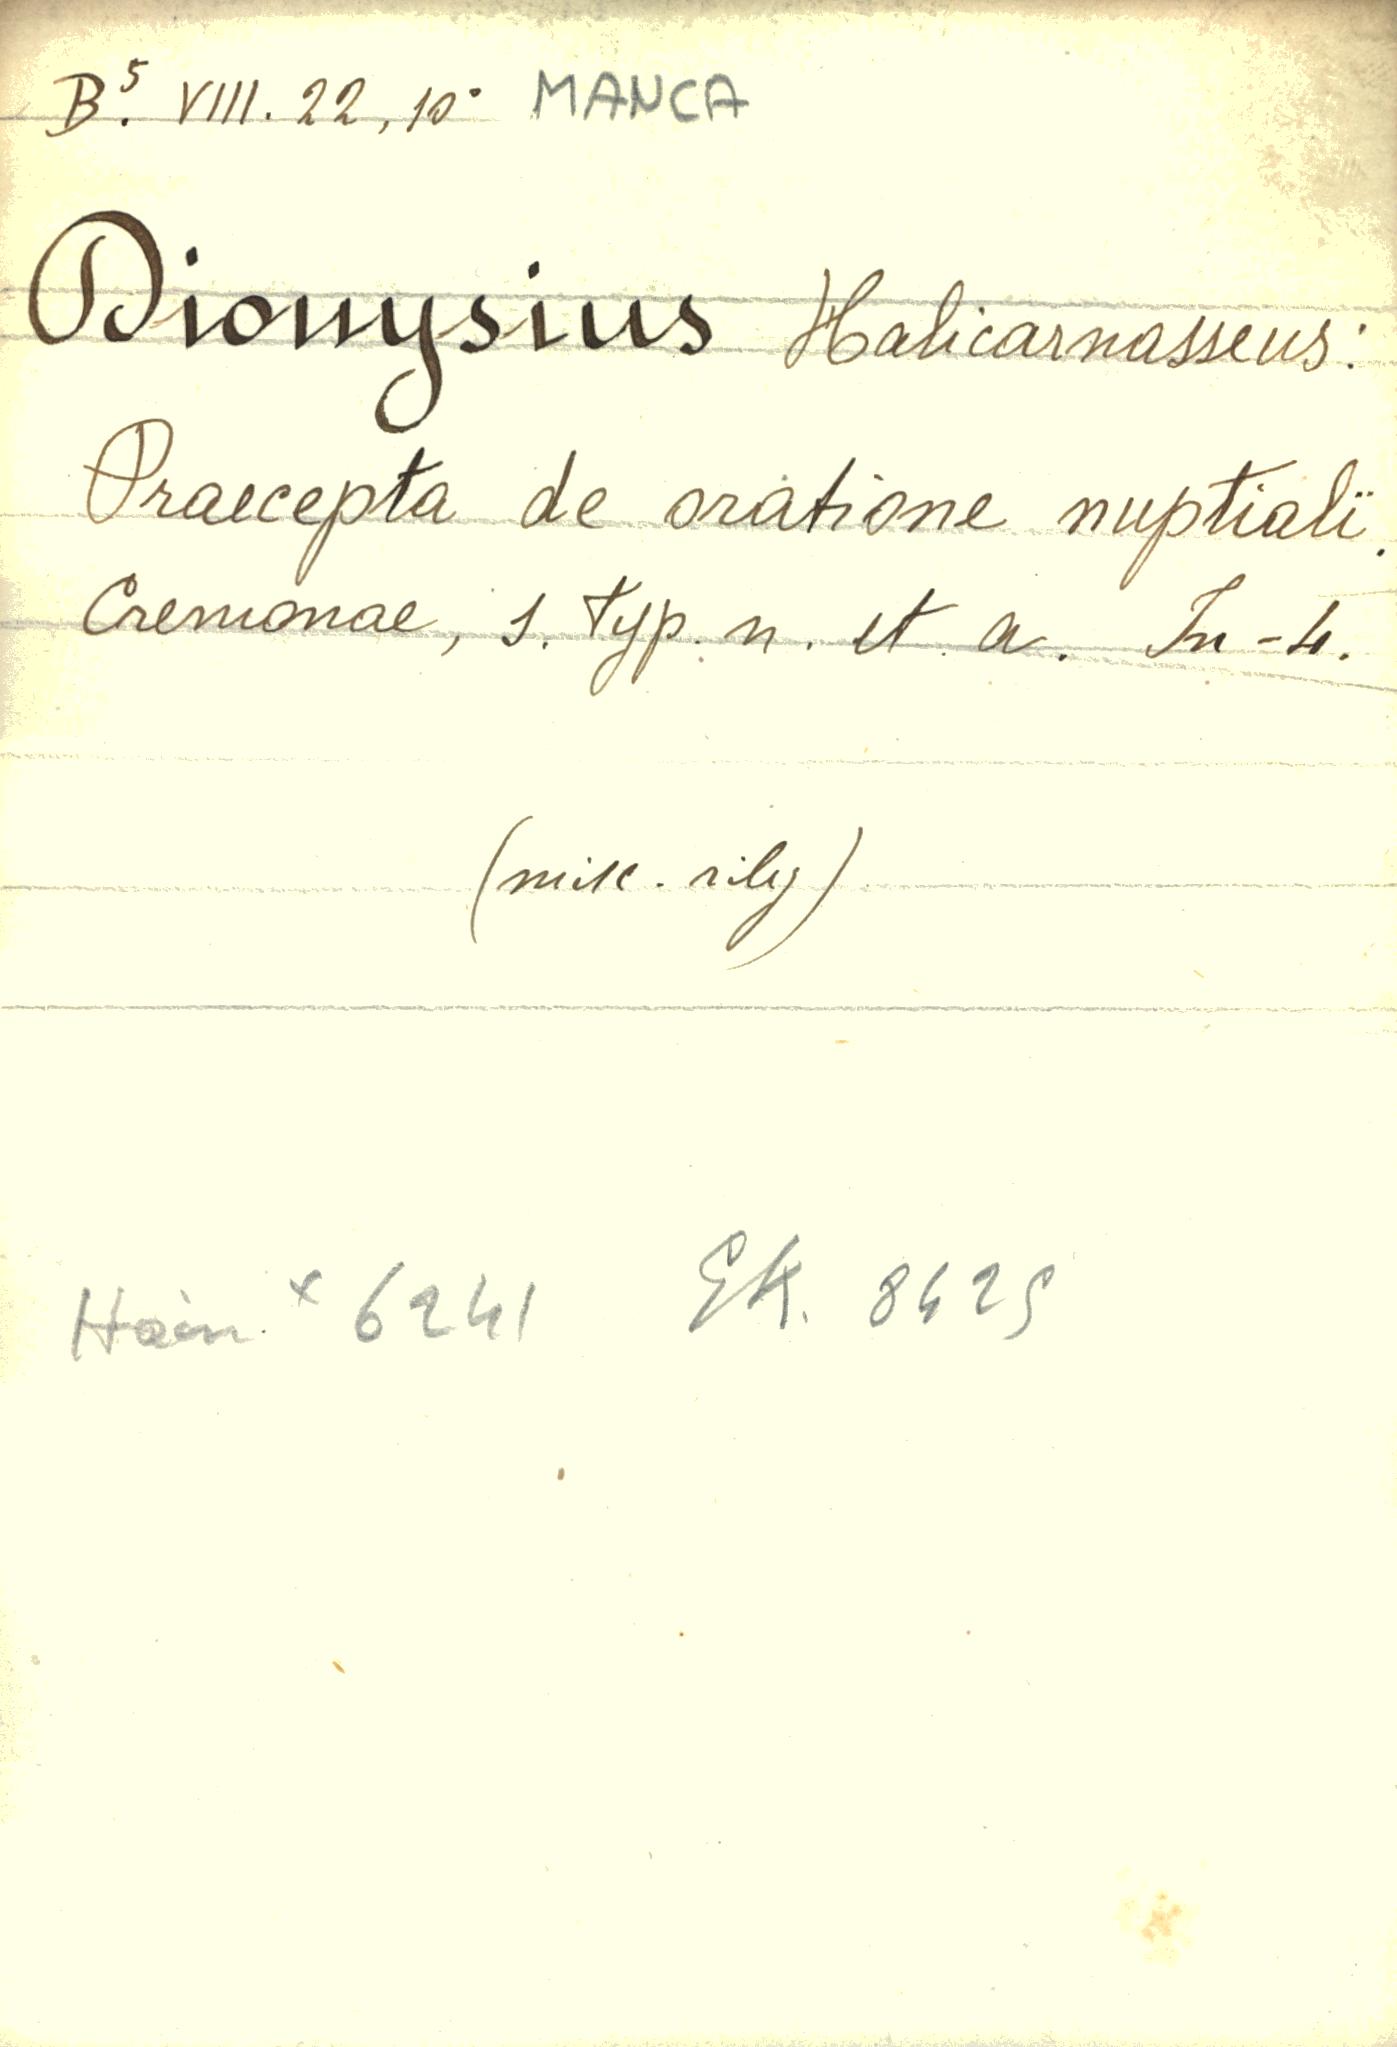 B⁵. VIII. 22, 10° MANCA
Dionysius Halicarnasseus:
Praecepta de oratione nuptiali.
Cremonae, s. typ. n. et a. In-4.
(misc. rileg)
Hain. × 6241 8425